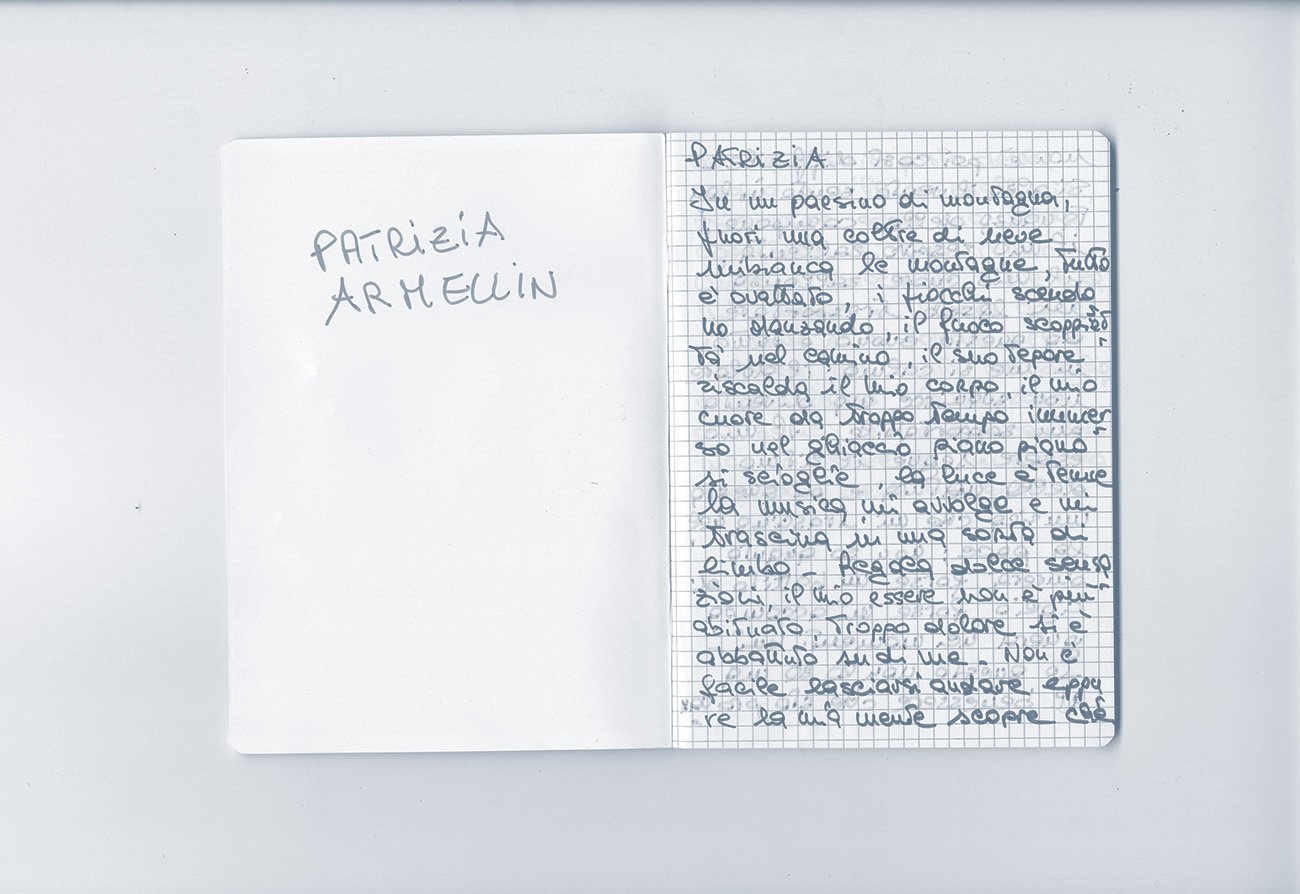 PATRIZIA
ARMELLIN
PATRIZIA
In un paesino di montagna,
fuori una coltre di neve
imbianca le montagne, tutto
è ovattato, i fiocchi scendo
no danzando, il fuoco scoppiet
ta nel camino, il suo tepore
riscalda il mio corpo, il mio
cuore da troppo tempo immer
so nel ghiaccio piano piano
si scioglie, la luce è tenue
la musica mi avvolge e mi
trascina in una sorta di
limbo - Regaca dolce sensa
zioni, il mio essere non è più
abituato, troppo dolore si è
abbattuto su di me - Non è
facile lasciarsi andare eppu
re la mia mente scopre che